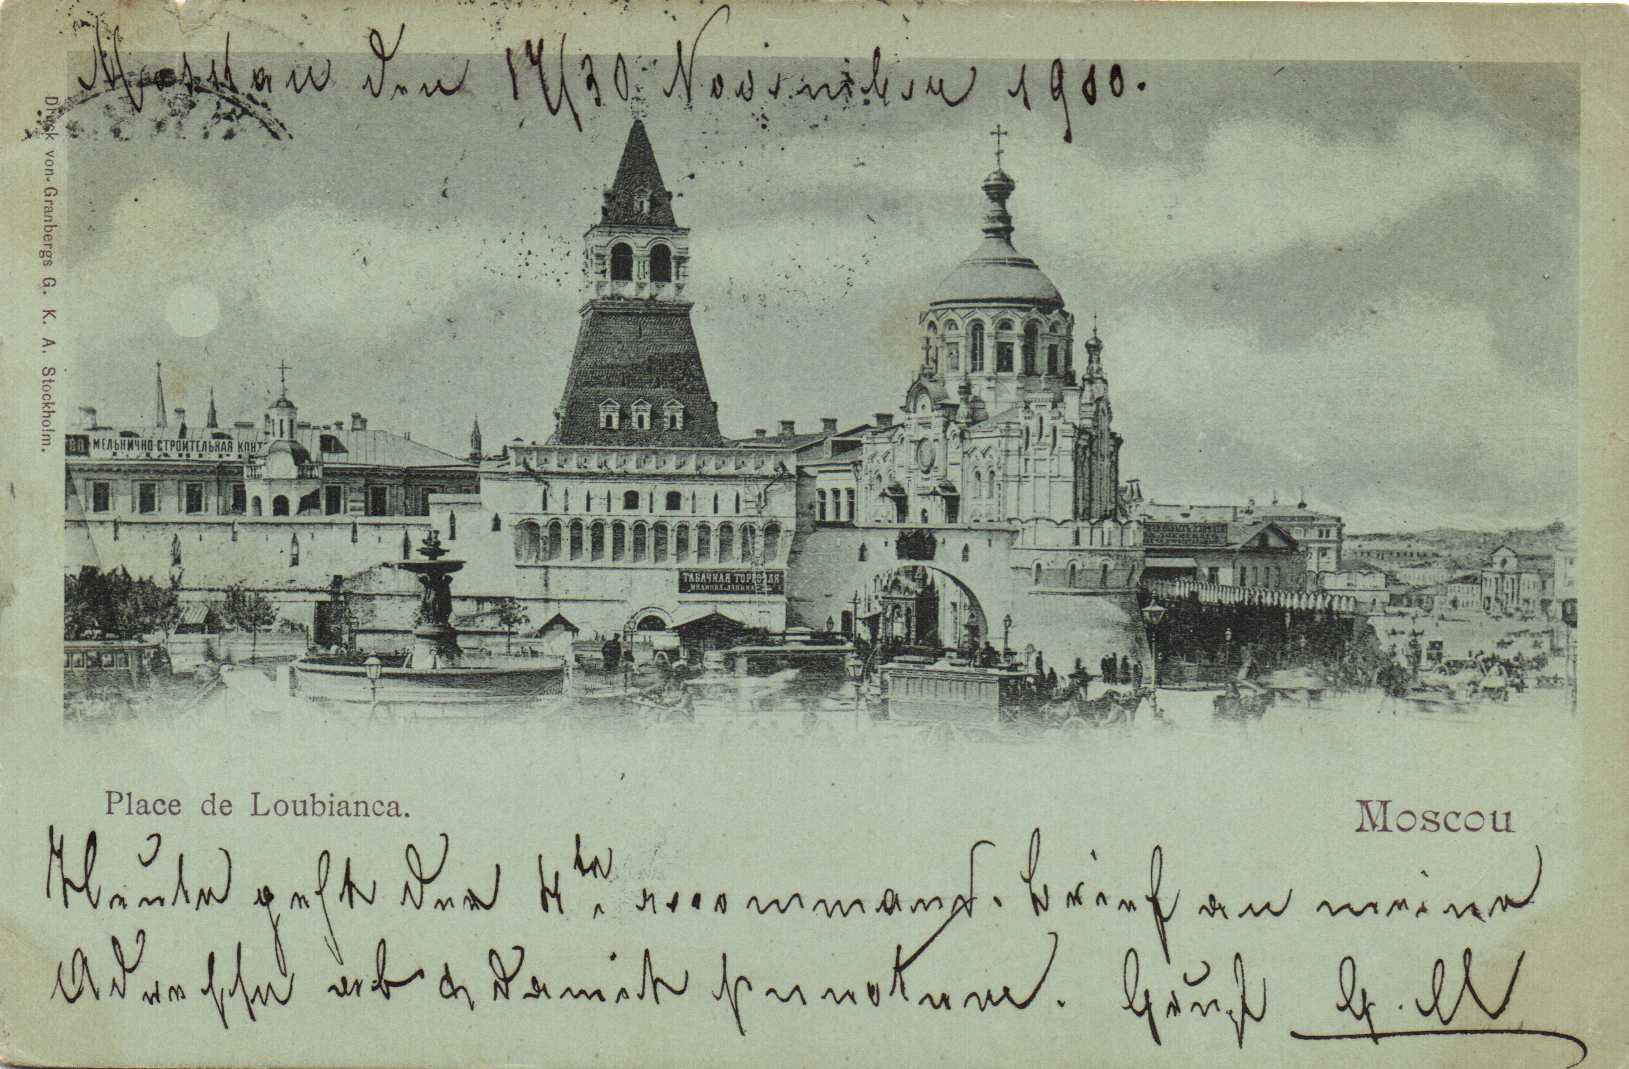 Moskau den 17/30 November 1900.
Druck von Granbergs G. K. A. Stockholm.
МЕЛЬНИЧНО-СТРОИТЕЛЬНАЯ КОНТ
ТАБАЧНАЯ ТОРГОВЛЯ
Place de Loubianca.
Moscou
Heute geht der 4te recommand. Brief an meine
Adresse ab & damit Gruß G. M.